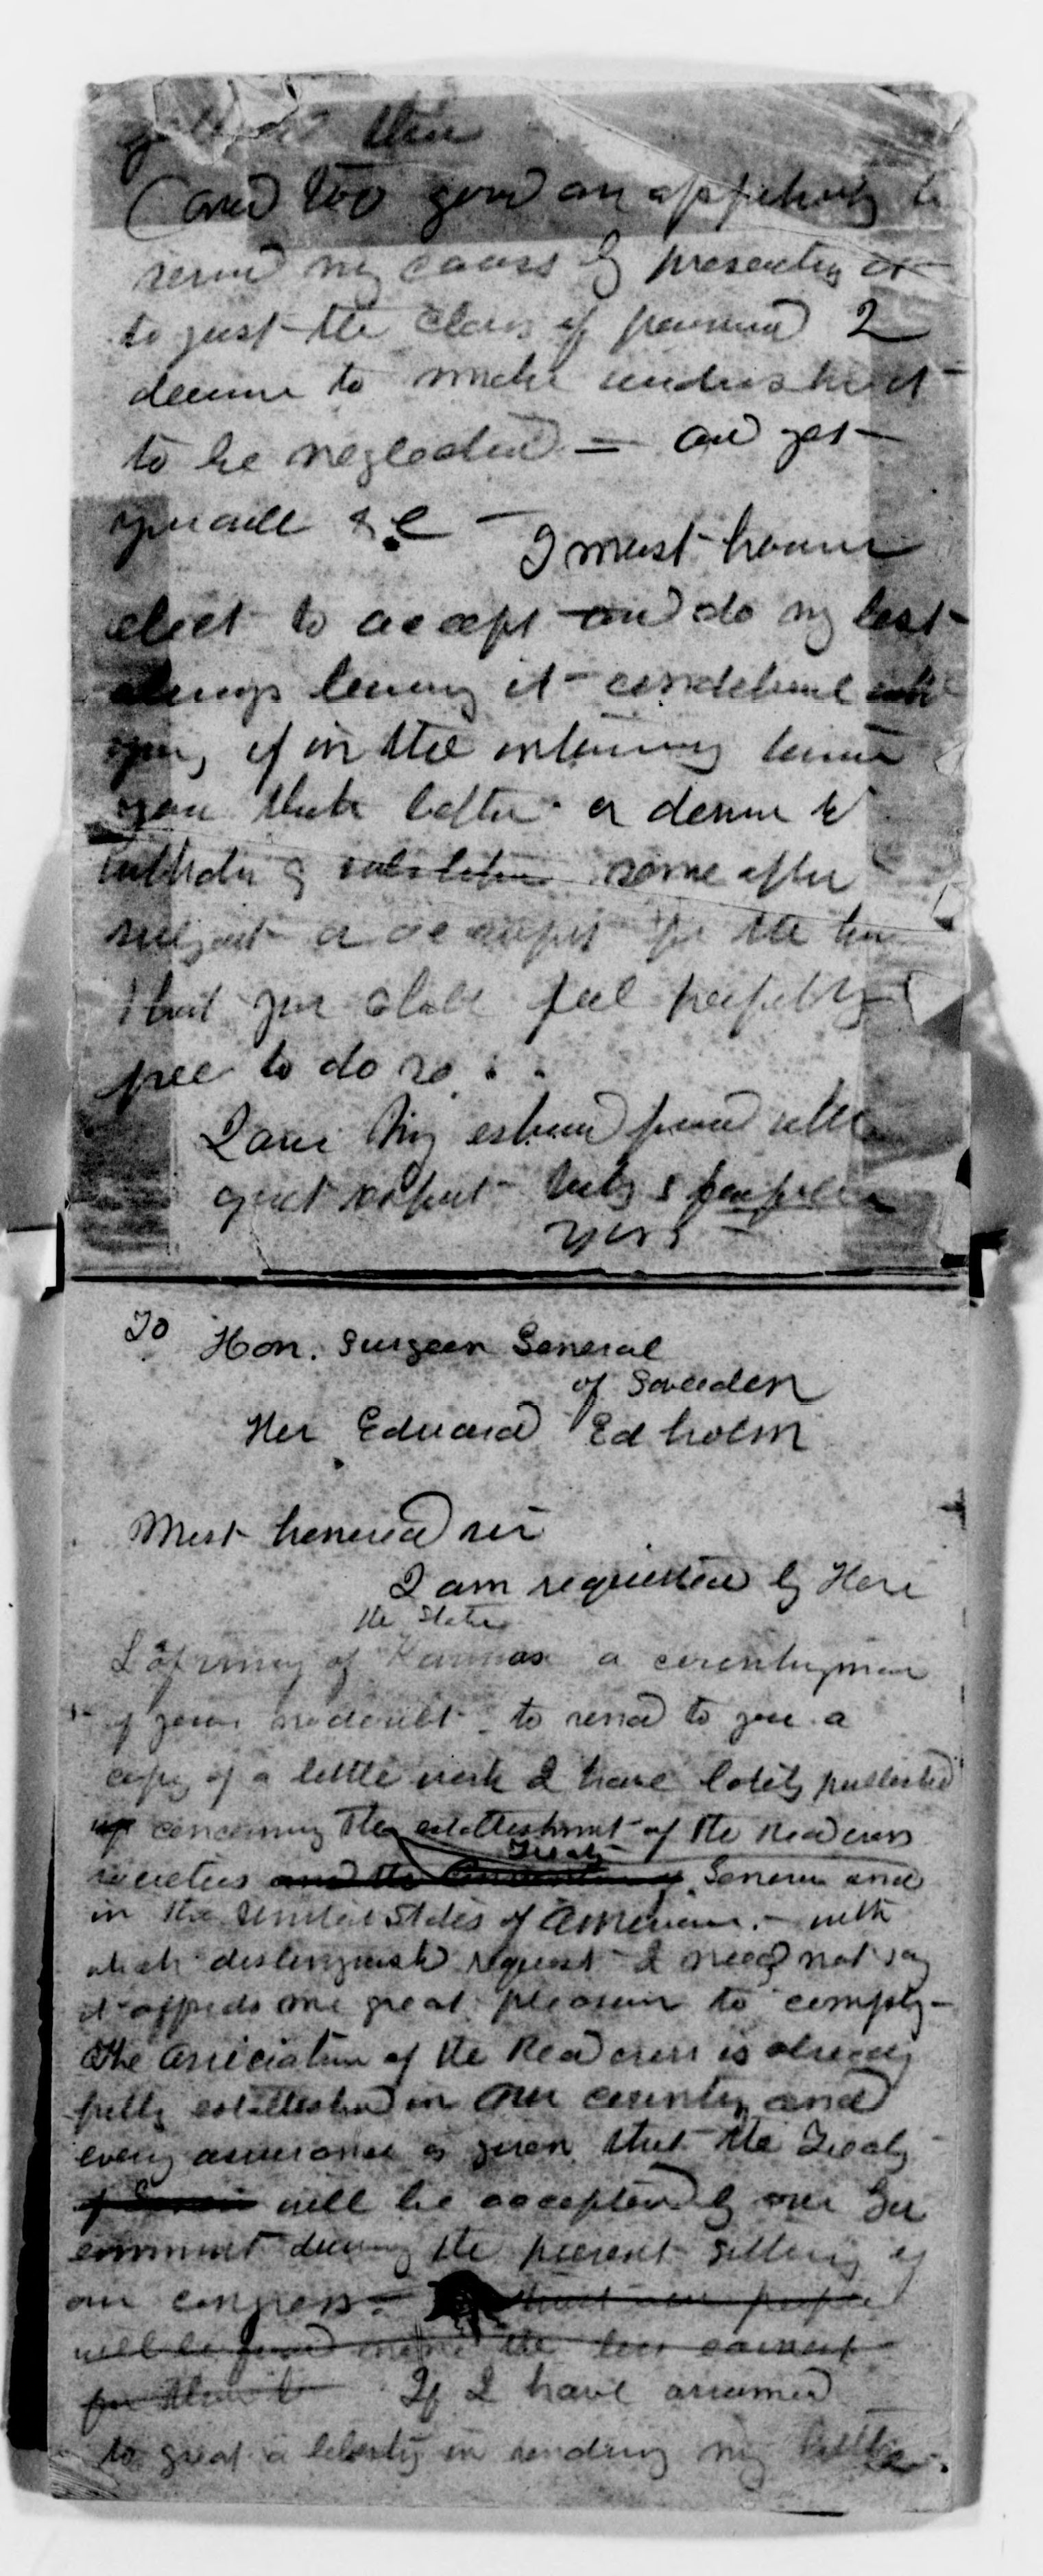 then
(and too good an oppertunity to
serve my cause by presenting it
to just the class of persons I
desire to make understand it
to be neglected = and yet
you will &c - I must however
elect to accept and do my best
always leaving it conditional with
you, if in the intervening time
you think better or desire to
withdraw & substitute some other
subject or occupant for the hour
that you shall feel perfectly
free to do so . .
I am My esteemed friend with
great respect truly & 
yours -
To Hon. Surgeon General
of Sweeden
Her Edward Edholm
Most honered sir
I am requested by Here
the State
of Kansas a countryman
of yours no doubt - to send to you a
copy of a little work I have lately published
concerning the establishment of the Red cross
Treaty
societies and the Convention of Geneva and
in the United States of America. - with
which distinguished request I need not say
it affords me great pleasure to comply -
The Association of the Red cross is already
fully established in our country and
every assurance is given that the Treaty
of Geneva will be accepted by our Gov
ernment during the present sitting of
our congress - trust our people
will be found none the less earnest
for If I have assumed
to great a liberty in sending my little